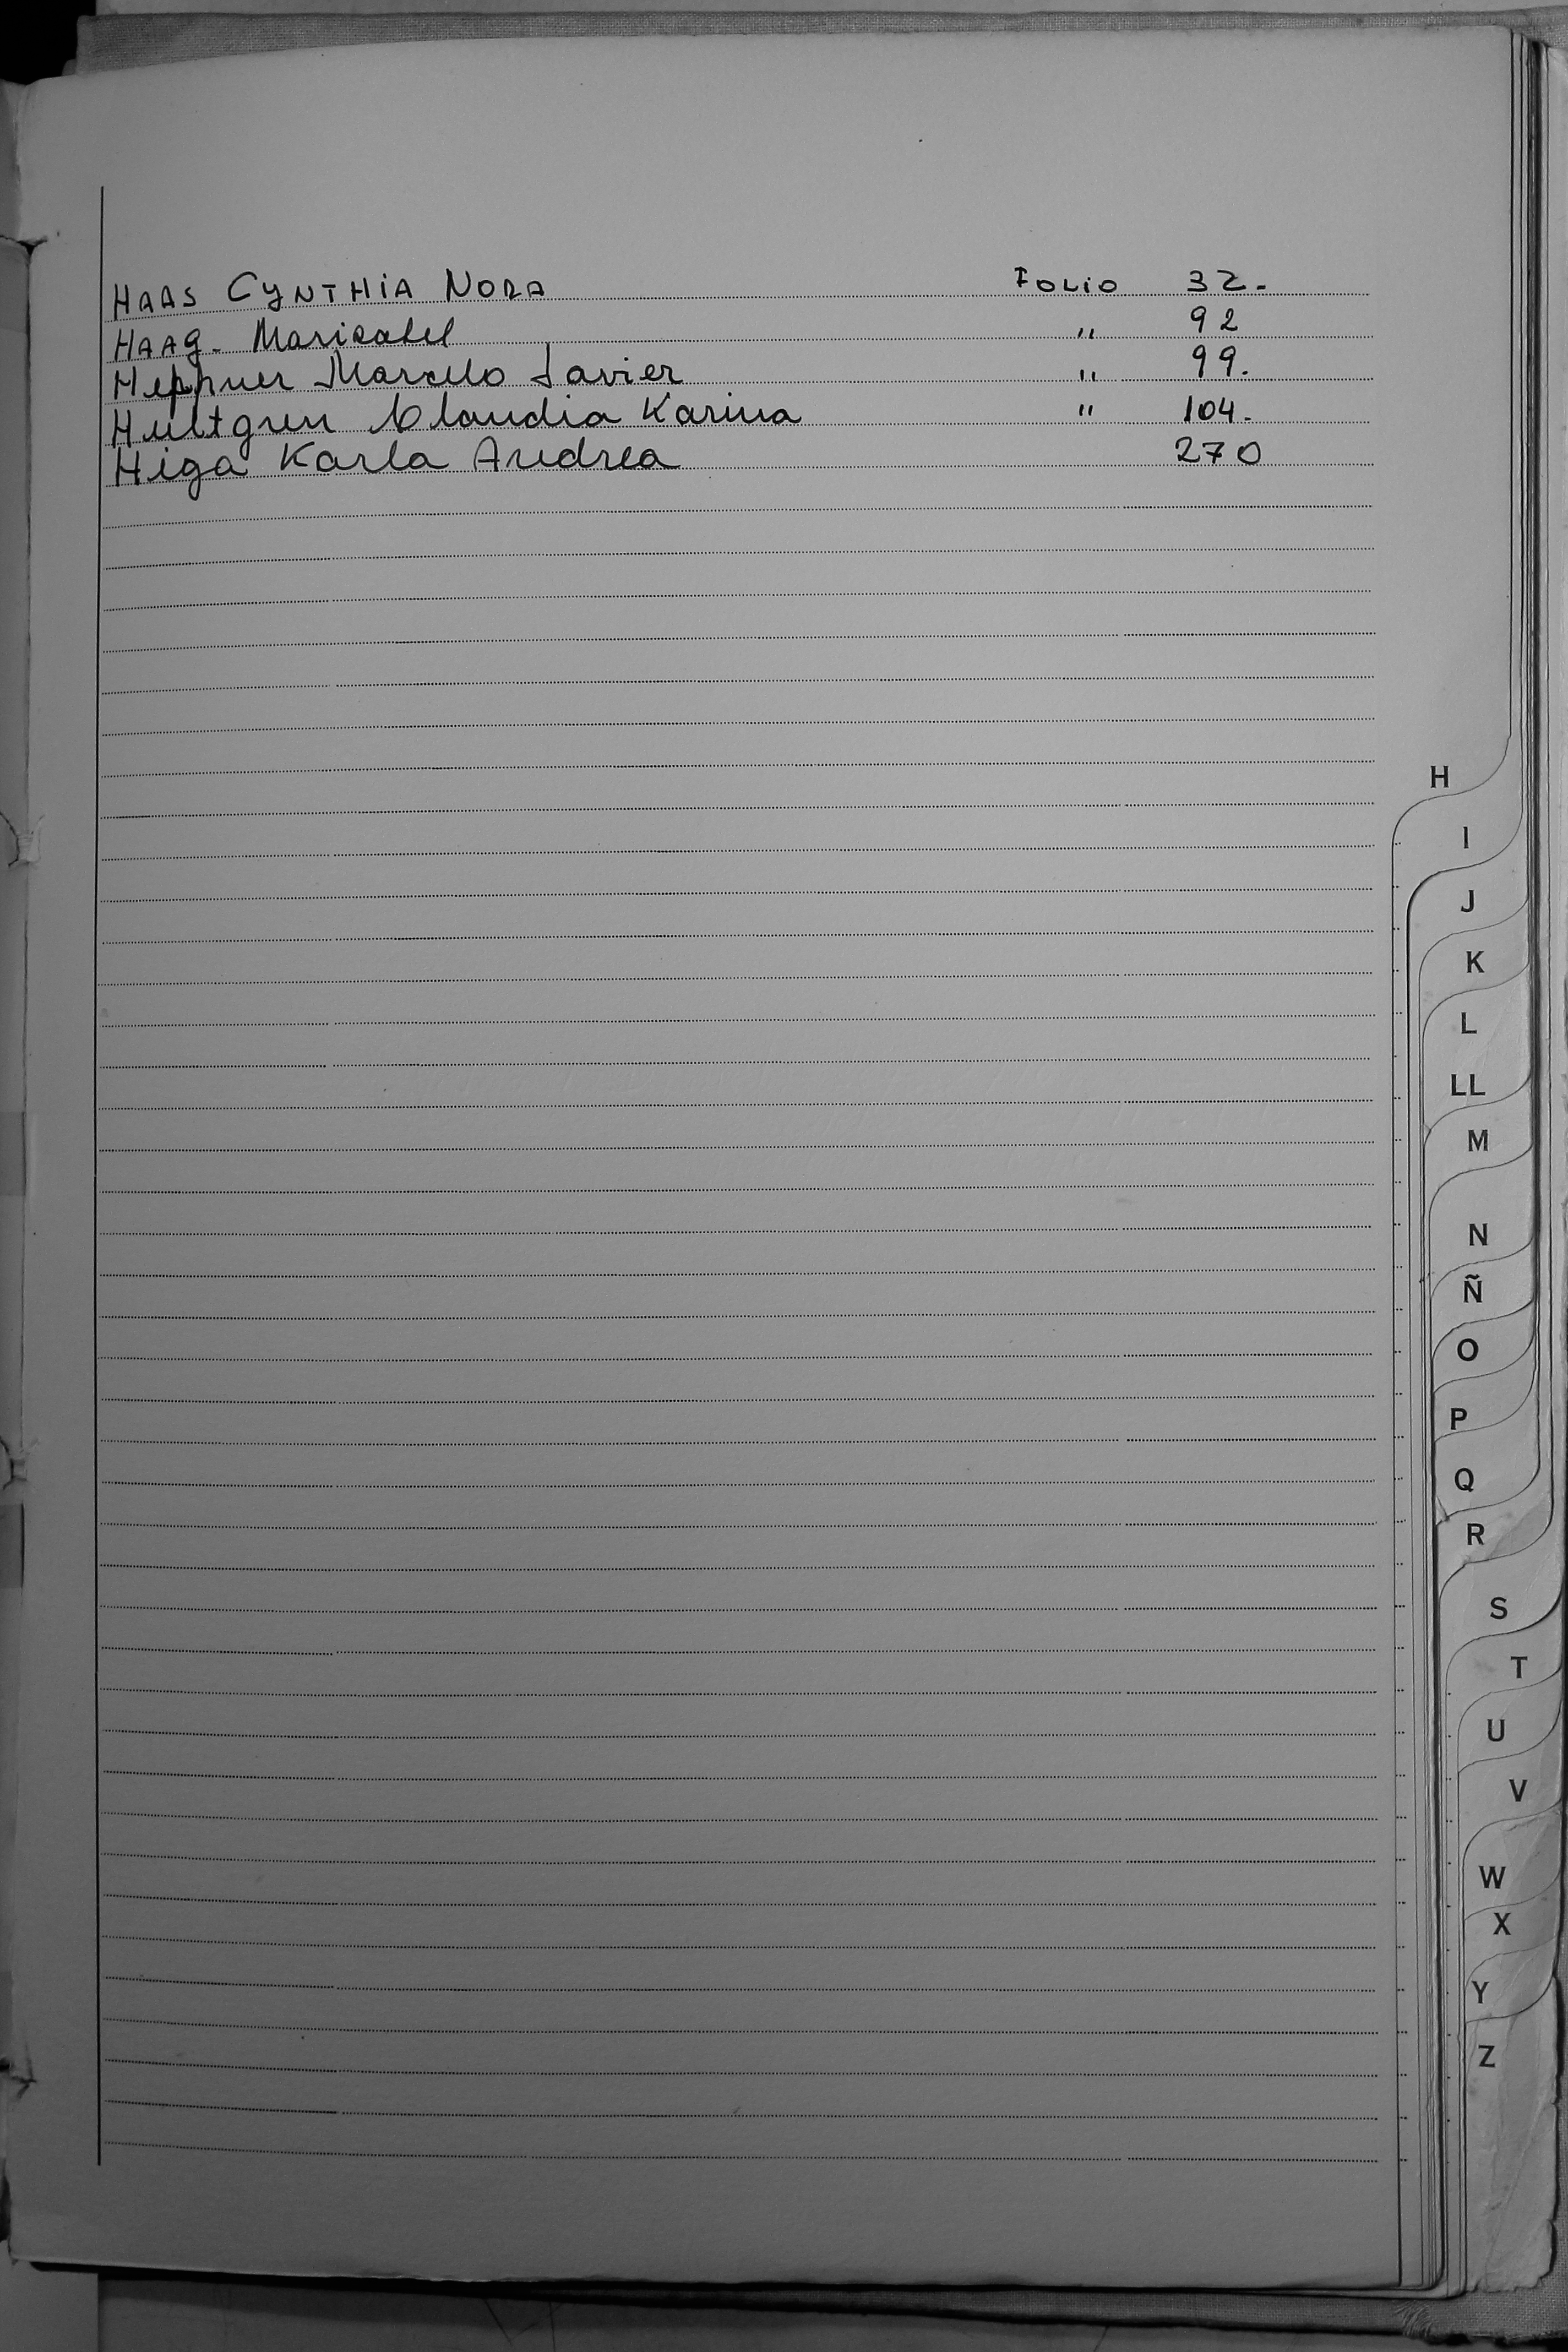 HAAS CYNTHIA NORA Folio 32.
HAAg. Marisabel " 92
Heppner Marcelo Javier " 99.
Hultgren Claudia Karina " 104.
Higa Karla Andrea 270
H
I
J
K
L
LL
M
N
Ñ
O
P
Q
R
S
T
U
V
W
X
Y
Z